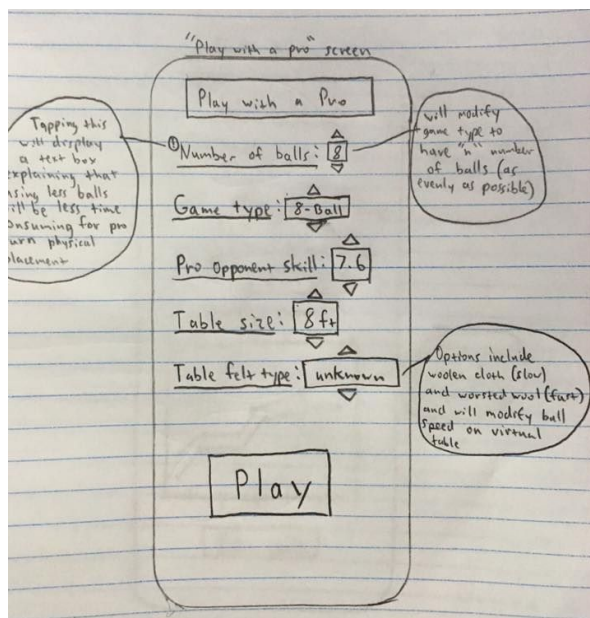 "Play with a pro" screen
Play with a Pro
Tapping this
will display
a text box
explaining that
using less balls
will be less time
consuming for pro
turn physical
placement
① Number of balls: 8
will modify
game type to
have "n" number
of balls (as
evenly as possible)
Game type: 8-Ball
Pro opponent skill: 7.6
Table size: 8ft
Table felt type: unknown
Options include
woolen cloth (slow)
and worsted wool (fast)
and will modify ball
speed on virtual
table
Play